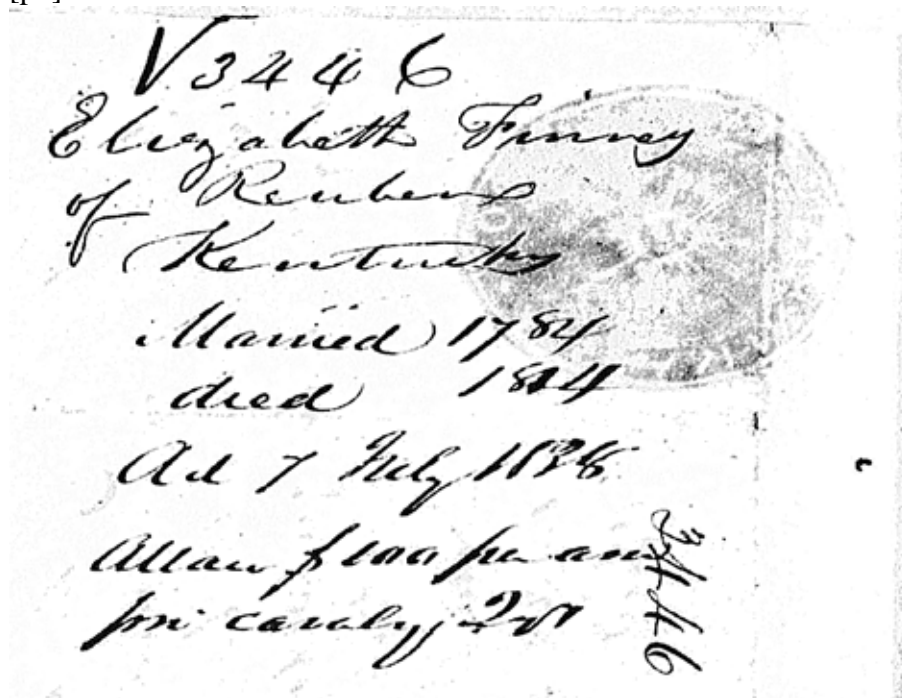 V 3446
Elizabeth Finney
of Reuben
Kentucky
Married 1784
died 1814
Act 7 July 1838
Allow $100 per ann
pri cavalry 2 yrs
3446